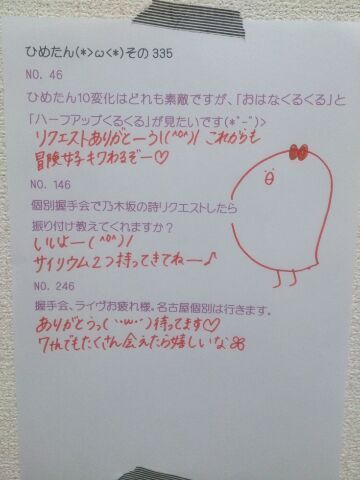 ひめたん(*>ω<*)その 335
NO. 46
ひめたん10変化はどれも素敵ですが、「おはなくるくる」と
「ハーフアップくるくる」が見たいです(*ﾟｰﾟ)>
リクエストありがとーう!(^o^)/ これからも
冒険女子キワめるぞー♡
NO. 146
個別握手会で乃木坂の詩リクエストしたら
振り付け教えてくれますか?
いいよー(^o^)/
サイリウム2つ持ってきてねー♪
NO. 246
握手会、ライヴお疲れ様。名古屋個別は行きます。
ありがとうっ(˙˘ω˘˙)待ってます♡
7thでもたくさん会えたら嬉しいな